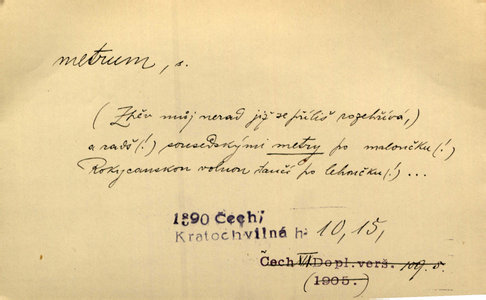 metrum, s.
(Zpěv můj nerad již se příliš rozehřívá,)
a radš (!) sousedskými metry po maloučku (!)
Rokycanskou volnou tančí po lehoučku (!) ...
1890 Čech,
Kratochvilná h. 10, 15,
Čech VI. Dopl. verš. 109. 5.
(1905.)